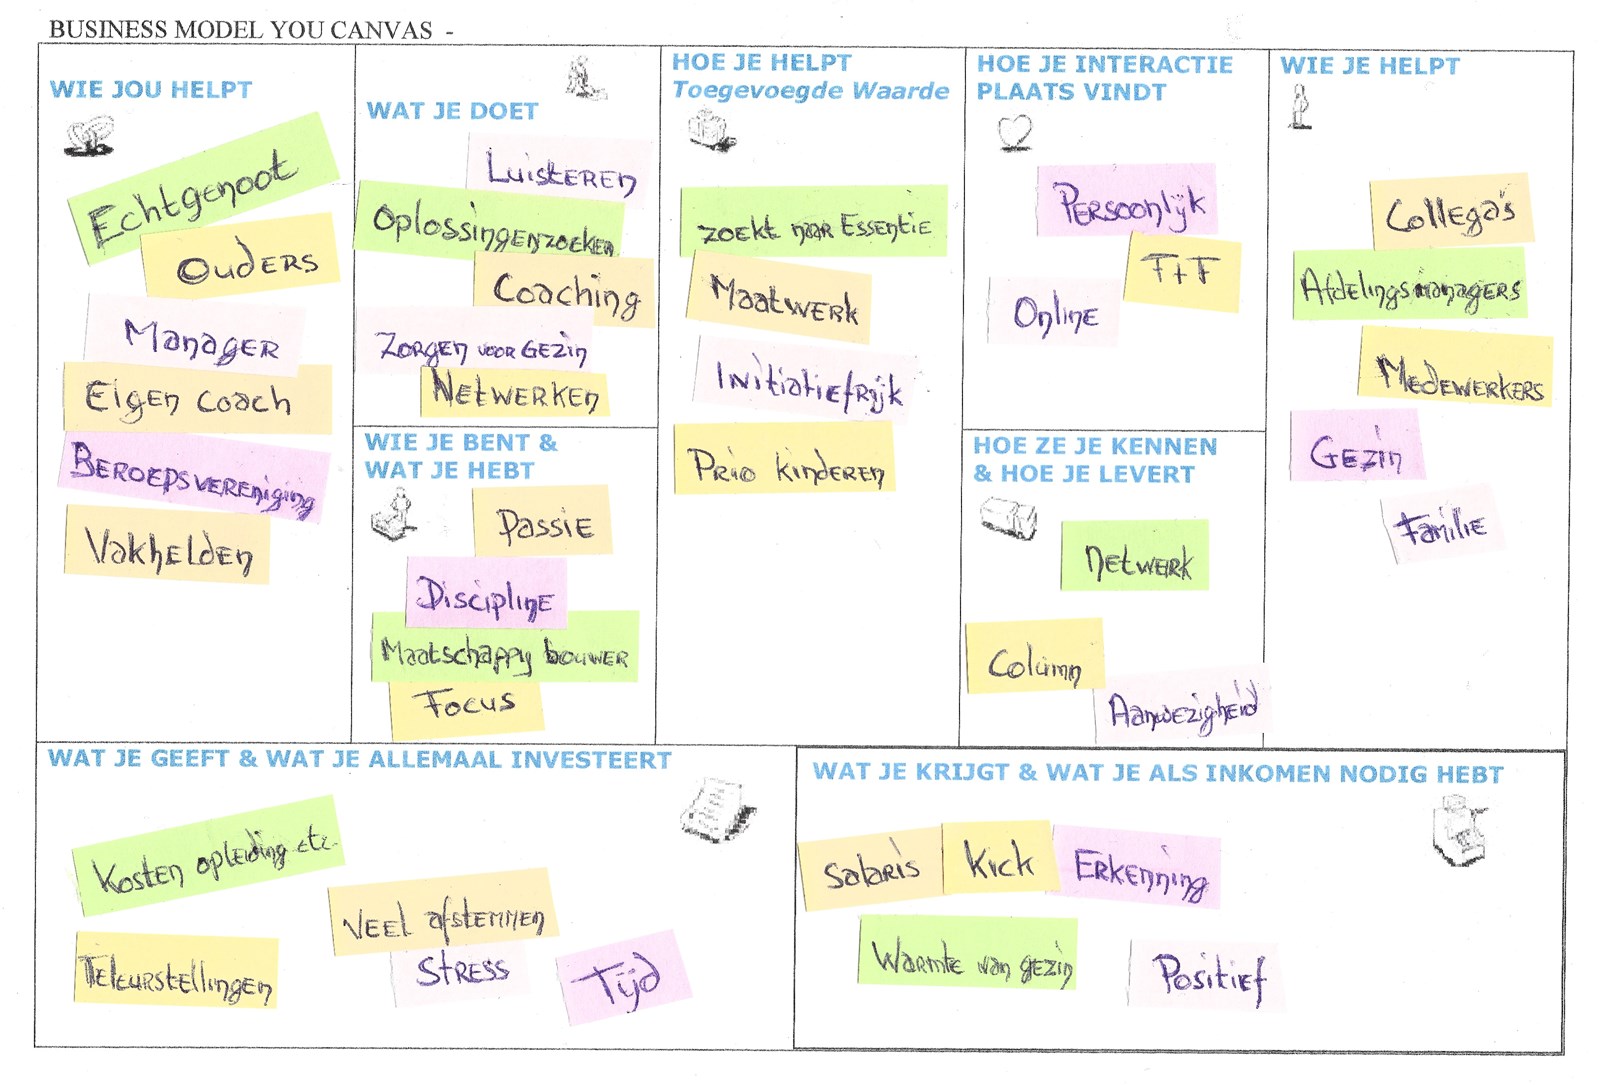 BUSINESS MODEL YOU CANVAS -
WIE JOU HELPT
Echtgenoot
Ouders
Manager
Eigen coach
Beroepsvereniging
Vakhelden
WAT JE DOET
Luisteren
Oplossingen zoeken
Coaching
Zorgen voor Gezin
Netwerken
WIE JE BENT &
WAT JE HEBT
Passie
Discipline
Maatschappij bouwer
Focus
HOE JE HELPT
Toegevoegde Waarde
zoekt naar Essentie
Maatwerk
Initiatiefrijk
Prio kinderen
HOE JE INTERACTIE
PLAATS VINDT
Persoonlijk
F+F
Online
HOE ZE JE KENNEN
& HOE JE LEVERT
Netwerk
Column
Aanwezigheid
WIE JE HELPT
Collega's
Afdelingsmanagers
Medewerkers
Gezin
Familie
WAT JE GEEFT & WAT JE ALLEMAAL INVESTEERT
Kosten opleiding etc.
Veel afstemmen
Teleurstellingen
Stress
Tijd
WAT JE KRIJGT & WAT JE ALS INKOMEN NODIG HEBT
Salaris
Kick
Erkenning
Warmte van gezin
Positief